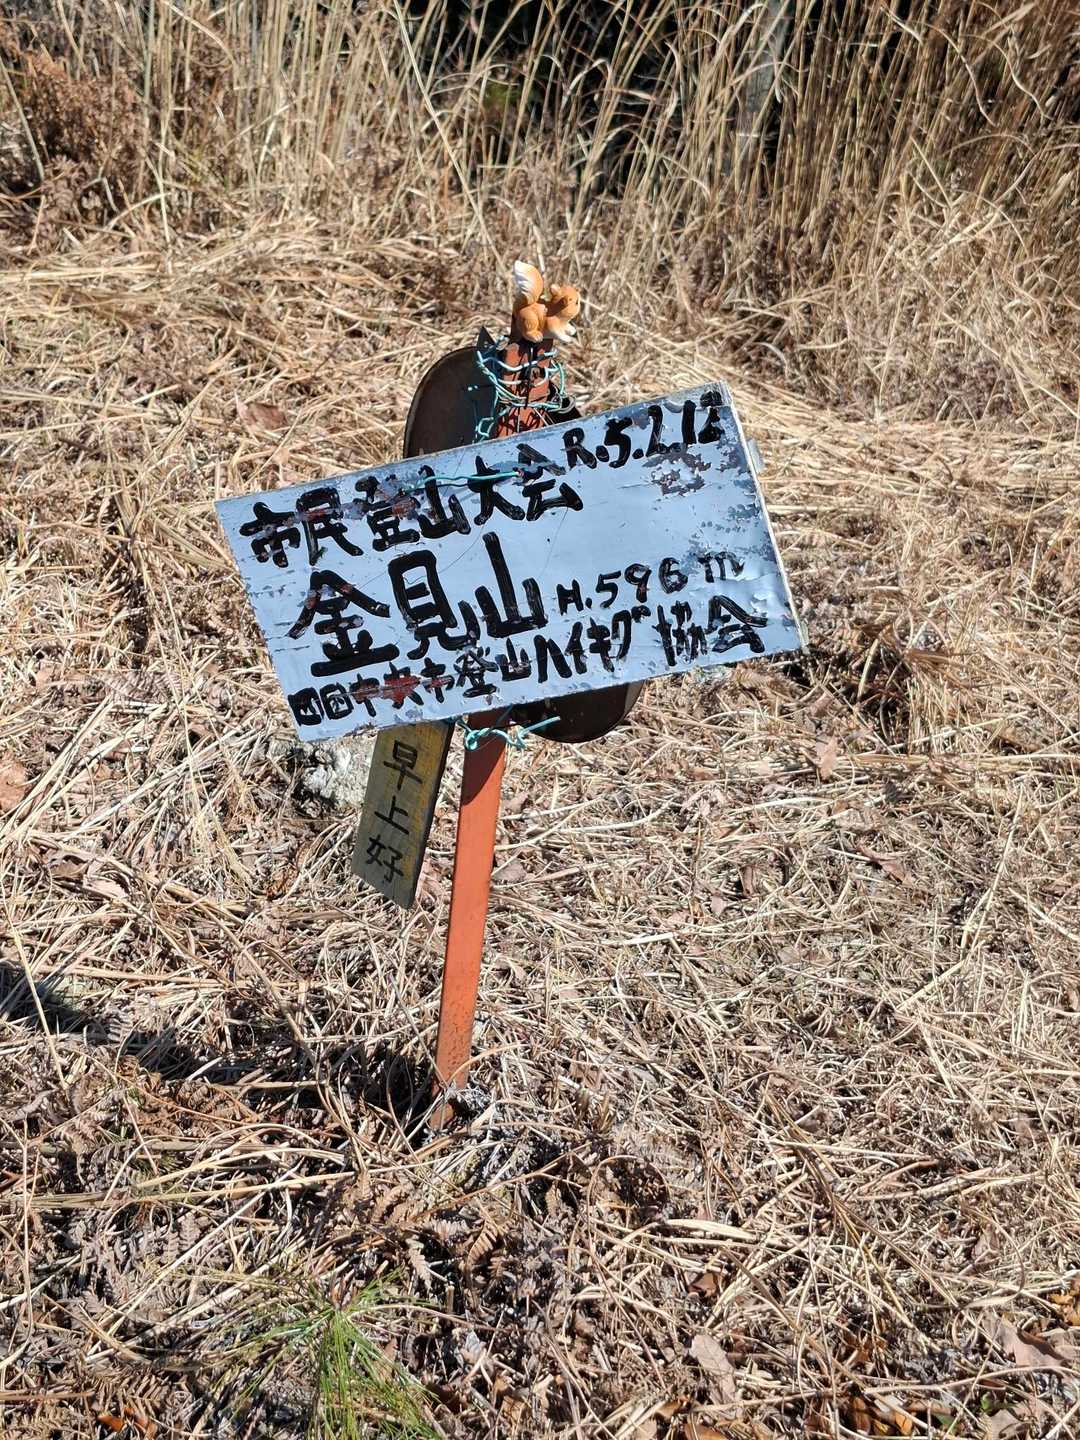 市民登山大会 R.5.2.12
金見山 H.596m
四国中央市登山ハイキング協会
早上好